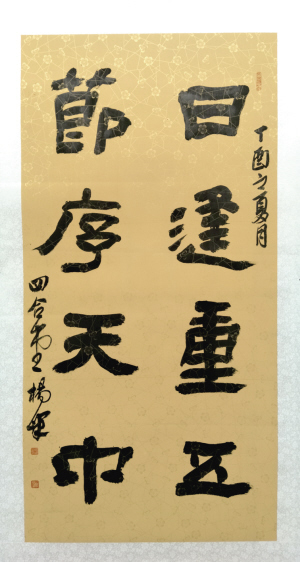 丁酉之夏月
日逢重五
節序天中
四合 楊